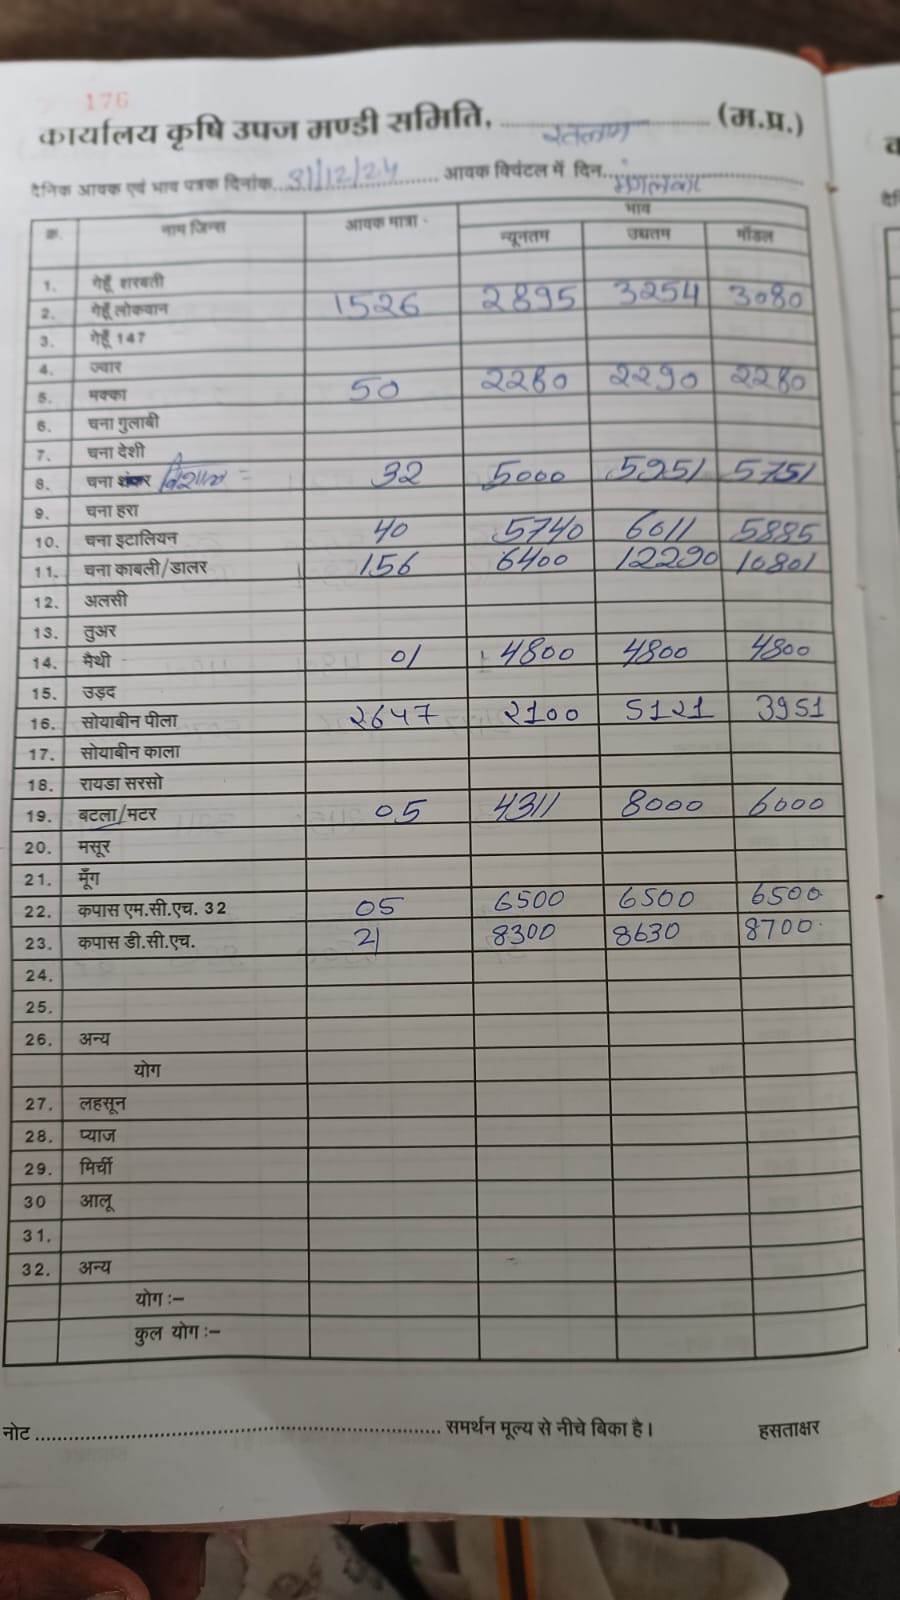 176
कार्यालय कृषि उपज मण्डी समिति, रतलाम (म.प्र.)
दैनिक आवक एवं भाव पत्रक दिनांक 31/12/24 आवक क्विंटल में दिन मंगलवार
क्र. नाम जिन्स आवक मात्रा भाव
न्यूनतम उच्चतम मॉडल
1. गेहूँ शरबती
2. गेहूँ लोकवान 1526 2895 3254 3080
3. गेहूँ 147
4. ज्वार
5. मक्का 50 2280 2290 2280
6. चना गुलाबी
7. चना देशी
8. चना शंकर विशाल = 32 5000 5951 5751
9. चना हरा
10. चना इटालियन 40 5740 6011 5885
11. चना काबली/डालर 156 6400 12290 10801
12. अलसी
13. तुअर
14. मैथी 01 4800 4800 4800
15. उड़द
16. सोयाबीन पीला 2647 2100 5121 3951
17. सोयाबीन काला
18. रायडा सरसो
19. बटला/मटर 05 4311 8000 6000
20. मसूर
21. मूँग
22. कपास एम.सी.एच. 32 05 6500 6500 6500
23. कपास डी.सी.एच. 21 8300 8630 8700
24.
25.
26. अन्य
योग
27. लहसून
28. प्याज
29. मिर्ची
30 आलू
31.
32. अन्य
योग :–
कुल योग :–
नोट समर्थन मूल्य से नीचे बिका है। हसताक्षर